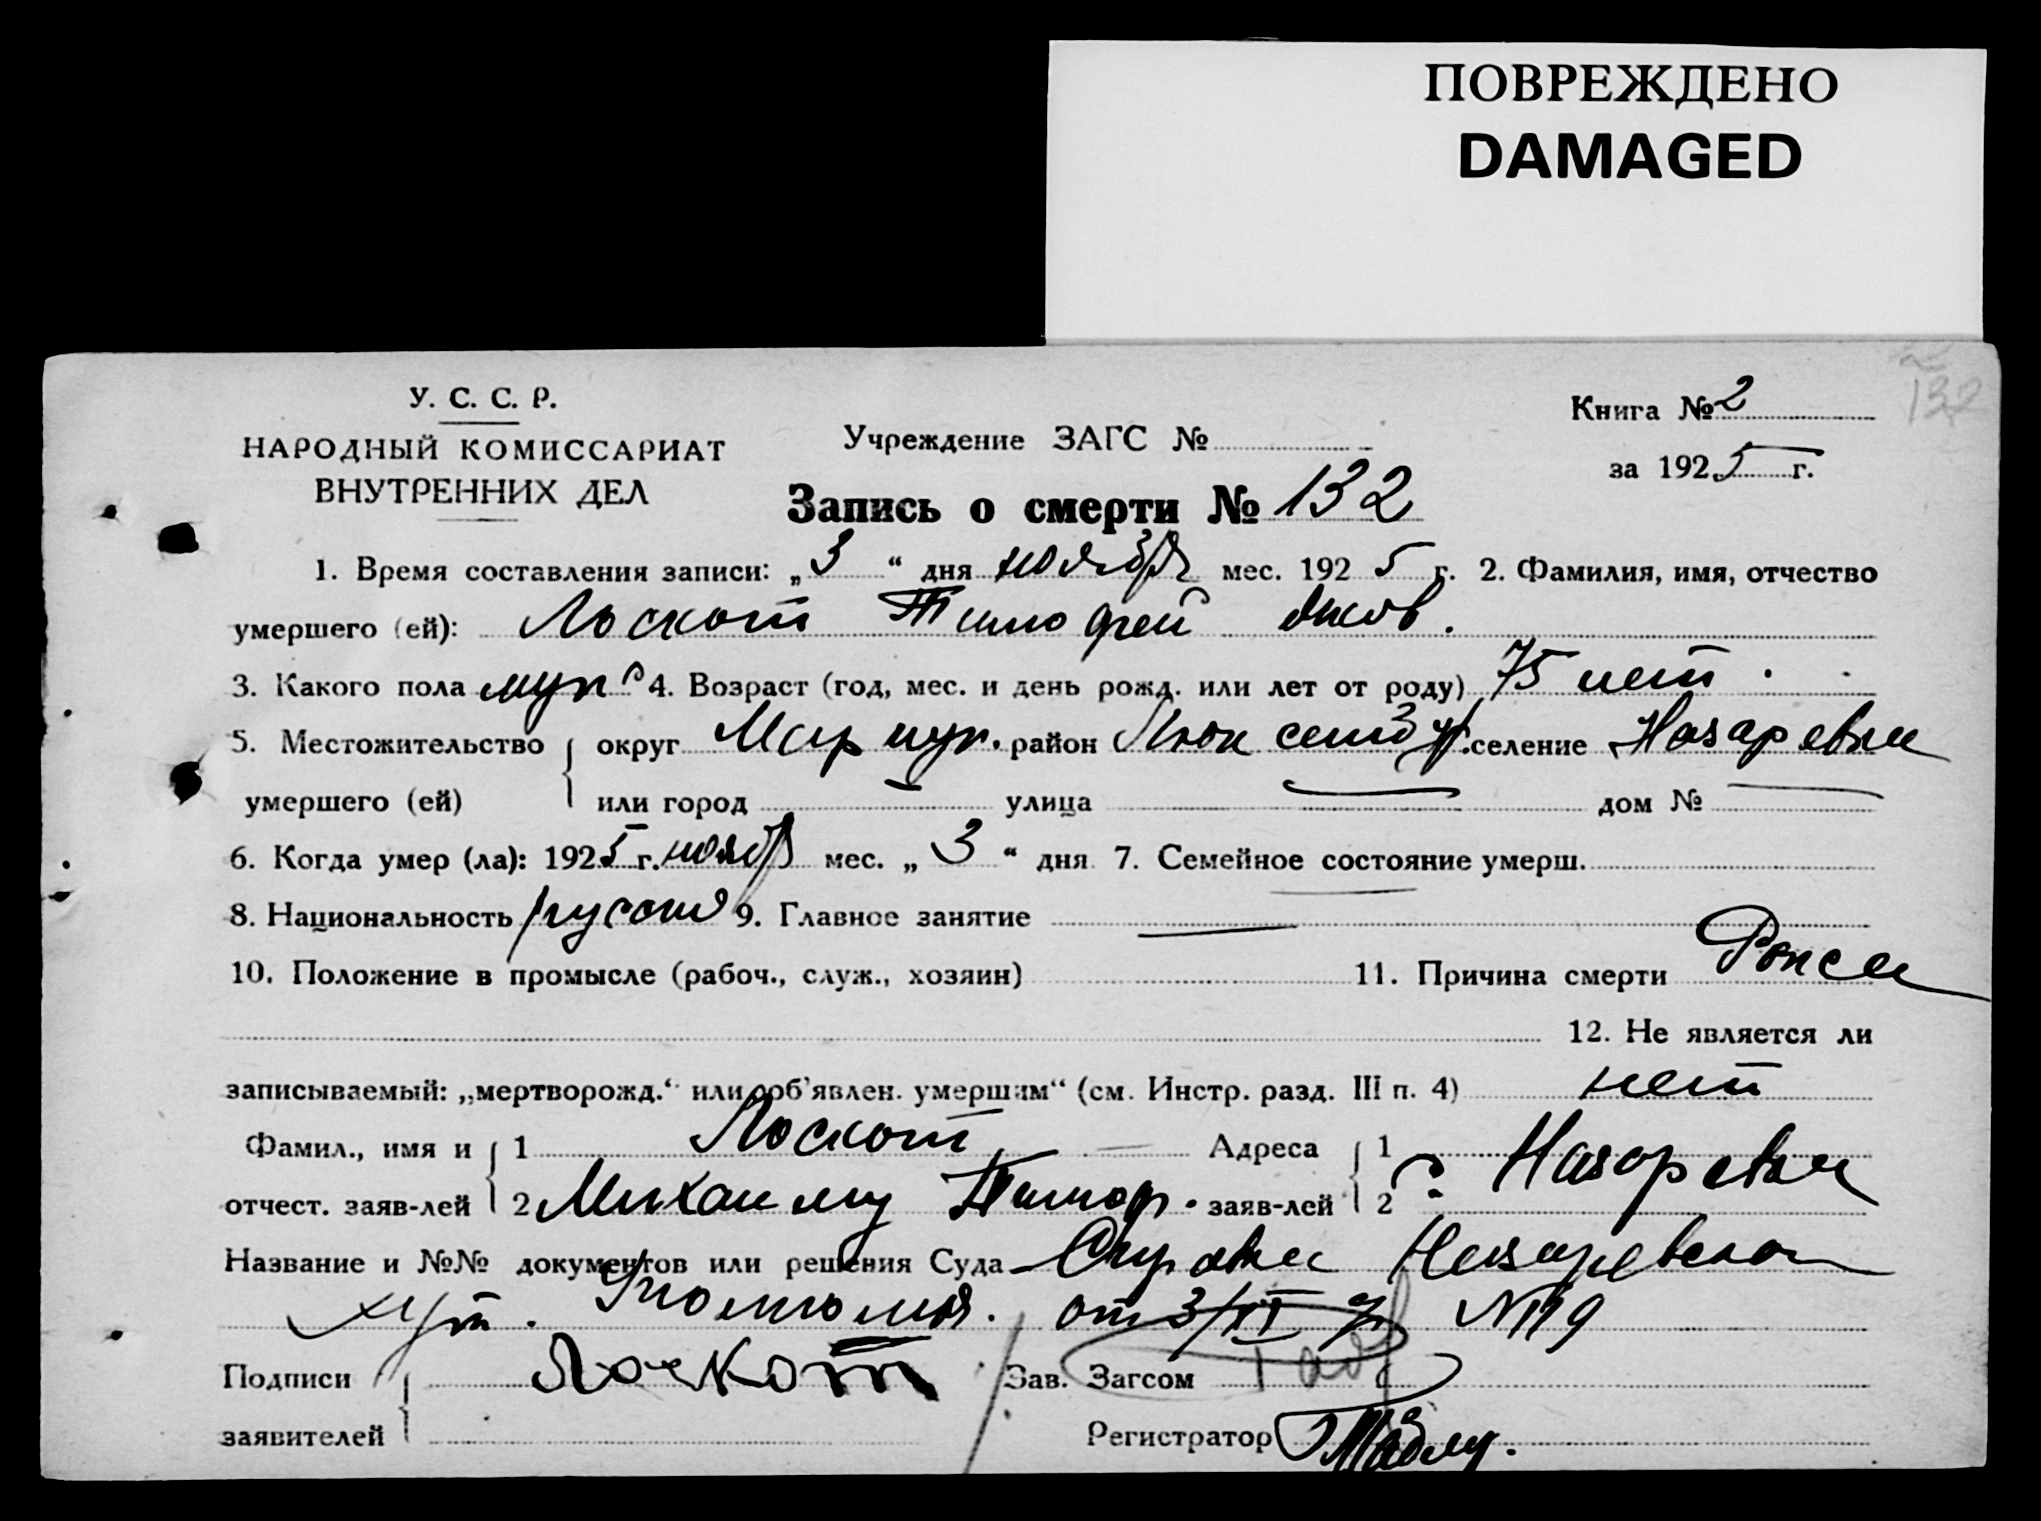 ПОВРЕЖДЕНО
DAMAGED
У. С. С. Р.
НАРОДНЫЙ КОМИССАРИАТ
ВНУТРЕННИХ ДЕЛ
Учреждение ЗАГС №
Книга № 2
за 1925 г.
132
Запись о смерти № 132
1. Время составления записи: „3“ дня ноября мес. 1925 г. 2. Фамилия, имя, отчество
умершего (ей): Лоскот Тимофей Яков.
3. Какого пола муж 4. Возраст (год, мес. и день рожд. или лет от роду) 75 лет.
5. Местожительство округ район Люксембур. селение Назаревка
умершего (ей) или город — улица — дом № —
6. Когда умер (ла): 1925 г. нояб мес. „3“ дня 7. Семейное состояние умерш.
8. Национальность 9. Главное занятие —
10. Положение в промысле (рабоч., служ., хозяин) 11. Причина смерти
12. Не является ли
записываемый: „мертворожд.“ или „об'явлен. умершим“ (см. Инстр. разд. III п. 4) нет
Фамил., имя и 1 Лоскот Адреса 1
отчест. заяв-лей 2 Тимоф. заяв-лей 2 с. Назаревка
Название и №№ документов или решения Суда Справка Назаревской
от 3/XI №119
Подписи Лоскот Зав. Загсом
заявителей Регистратор